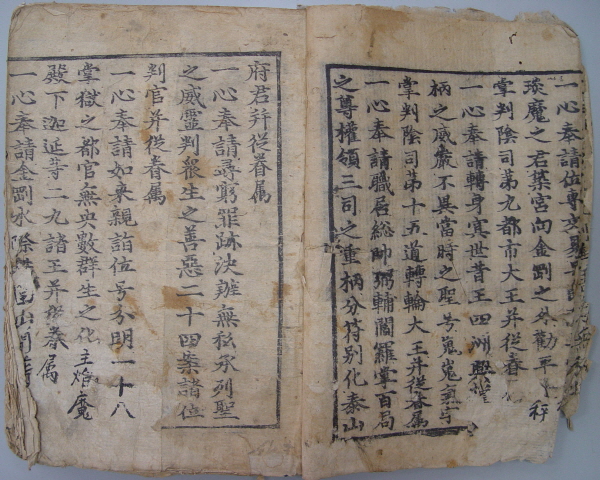 一心奉請位專
琰魔之君築宮向金剛之外勸平等秤
掌判陰司第九都市大王并從眷
一心奉請轉身寰世昔王四洲
柄之威嚴不具當時之聖号嵬嵬
掌判陰司第十五道轉輪大王并從眷属
一心奉請職居総帥弼輔閻羅掌百局
之尊權領三司之重柄分符别化泰山
府君并從眷属
一心奉請尋窮罪跡決辨無私承列聖
之威靈判衆生之善惡二十四案諸位
判官并從眷属
一心奉請如来親詣位号分明一十八
掌獄之都官無央數群生之化主焰魔
殿下迦延等二九諸王并從眷属
一心奉請金剛水際